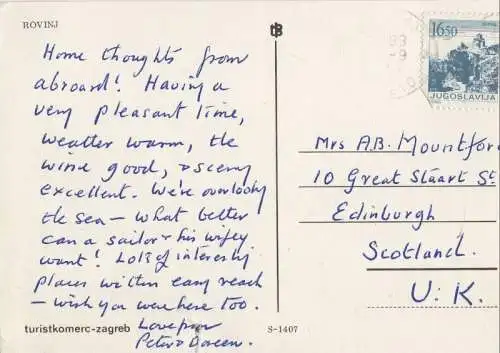 ROVINJ
Home thoughts from
abroad! Having a
very pleasant time,
weather warm, the
wine good, & scenery
excellent. We're overlooking
the sea — what better
can a sailor & his wifey
want! Lots of interesting
places within easy reach
— wish you were here too.
Love from
Peter & Doreen.
turistkomerc-zagreb
S-1407
16,50
JUGOSLAVIJA
Mrs A.B. Mountford
10 Great Stuart St
Edinburgh
Scotland.
U.K.